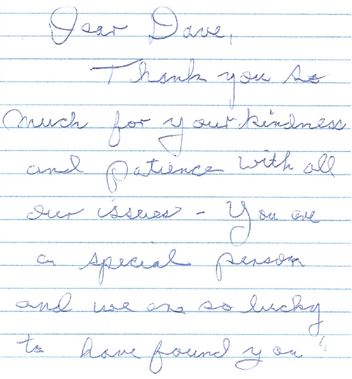 Dear Dave,
Thank you so
much for your kindness
and patience with all
our issues - You are
a special person
and we are so lucky
to have found you"